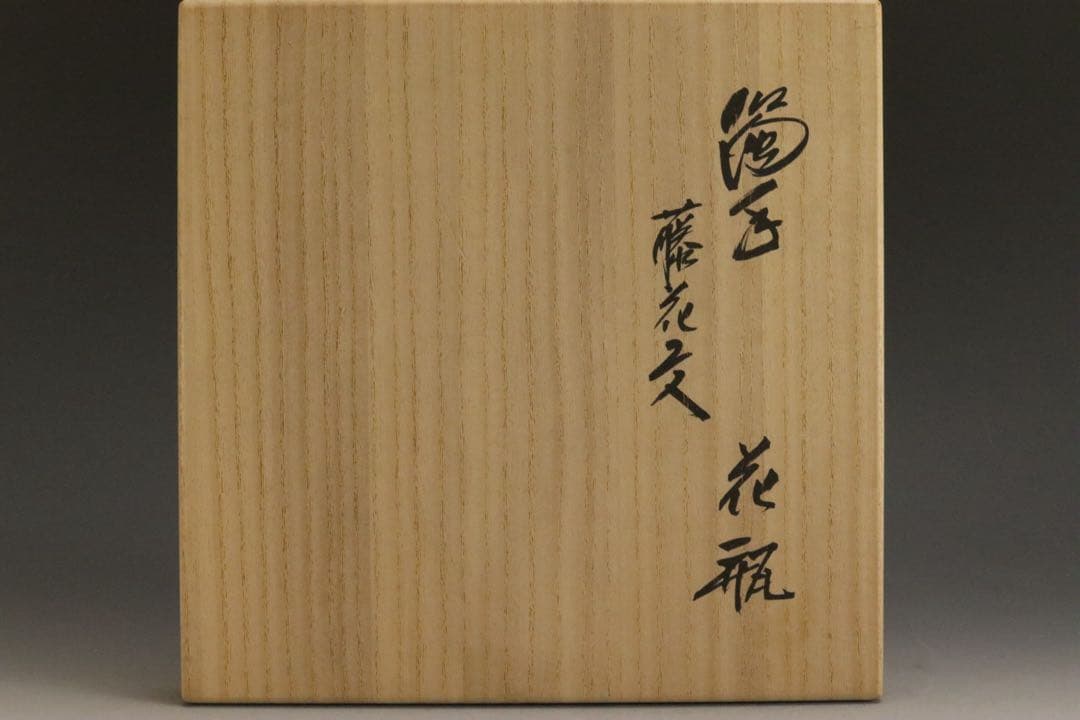 濁手
藤花文
花瓶